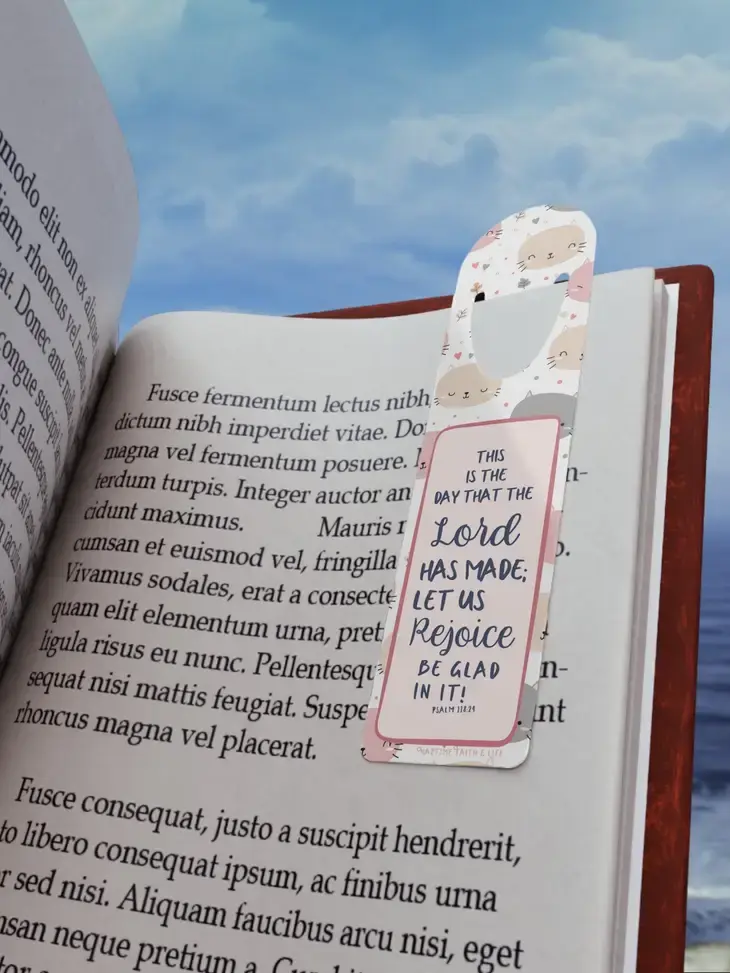 elit non ex
rhoncus vel
Donec ante
congue
Fusce fermentum lectus nibh
dictum nibh imperdiet vitae.
magna vel fermentum posuere.
terdum turpis. Integer auctor
cidunt maximus. Mauris
cumsan et euismod vel, fringilla
Vivamus sodales, erat a
quam elit elementum urna,
ligula risus eu nunc.
sequat nisi mattis feugiat.
rhoncus magna vel placerat.
Fusce consequat, justo a suscipit hendrerit,
to libero consequat ipsum, ac finibus urna
sed nisi. Aliquam faucibus arcu nisi, eget
neque pretium a.
THIS
IS THE
DAY THAT THE
Lord
HAS MADE;
LET US
Rejoice
BE GLAD
IN IT!
PSALM 118:24
FAITH & LIFE